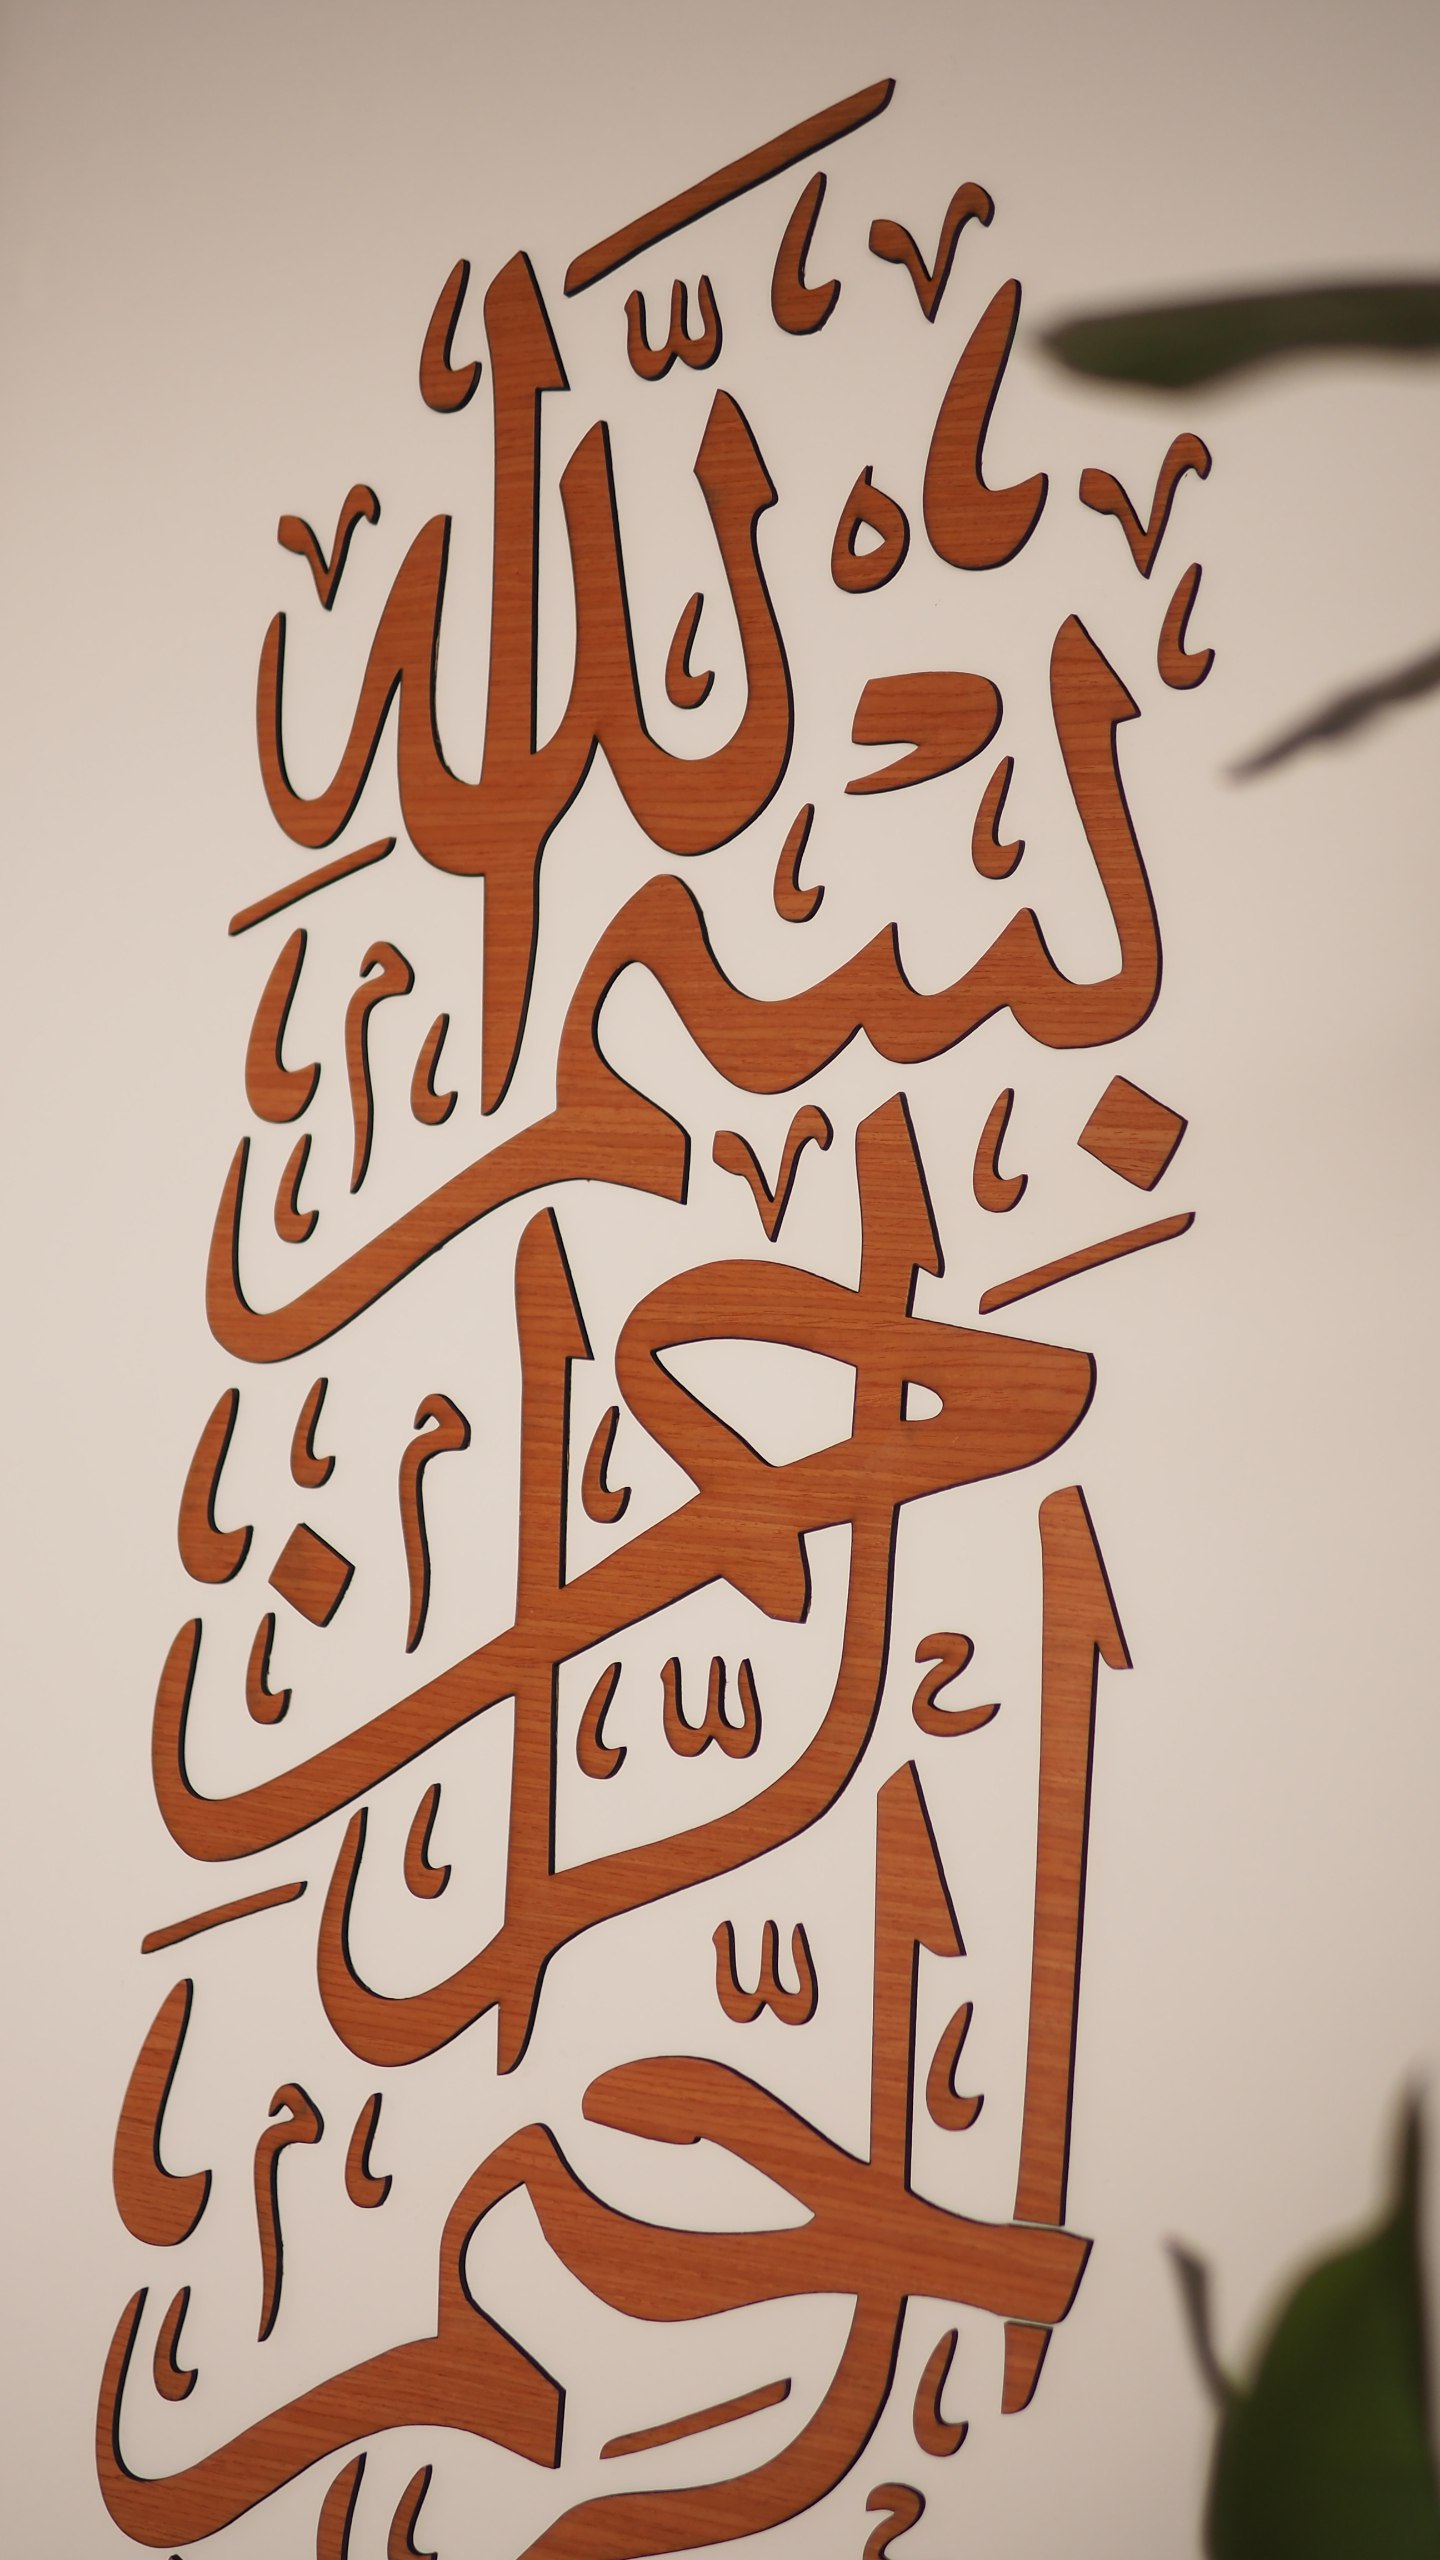 بسم
الله
الرحمن
الرحيم